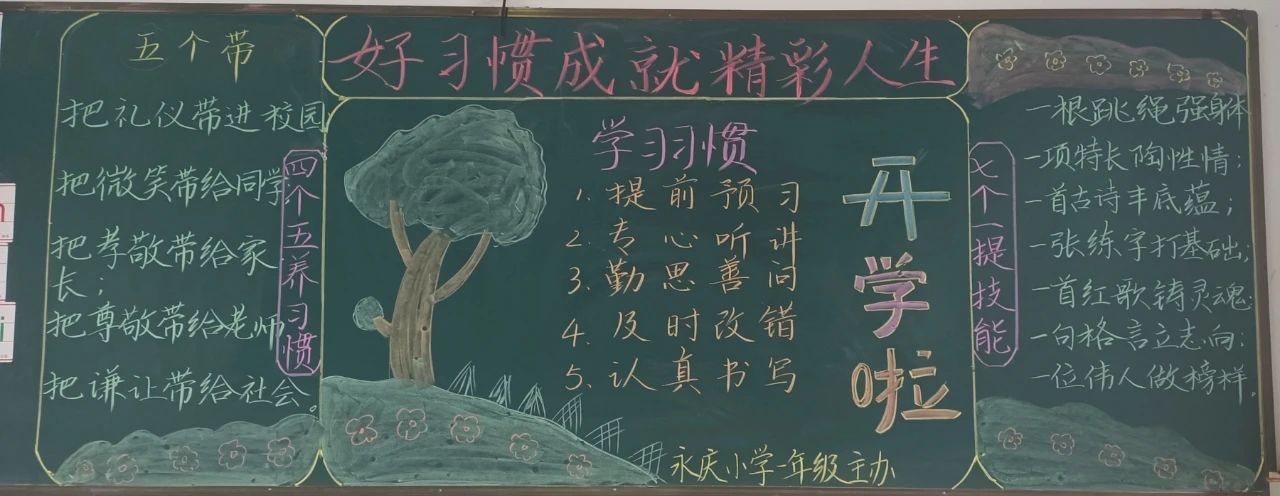 好习惯成就精彩人生
五个带
把礼仪带进校园
把微笑带给同学
把孝敬带给家
长;
把尊敬带给老师
把谦让带给社会。
四个五养习惯
学习习惯
1. 提前预习
2. 专心听讲
3. 勤思善问
4. 及时改错
5. 认真书写
开学啦
永庆小学一年级主办
七个一提技能
一根跳绳强身体
一项特长陶性情;
一首古诗丰底蕴;
一张练字打基础;
一首红歌铸灵魂;
一句格言立志向;
一位伟人做榜样.